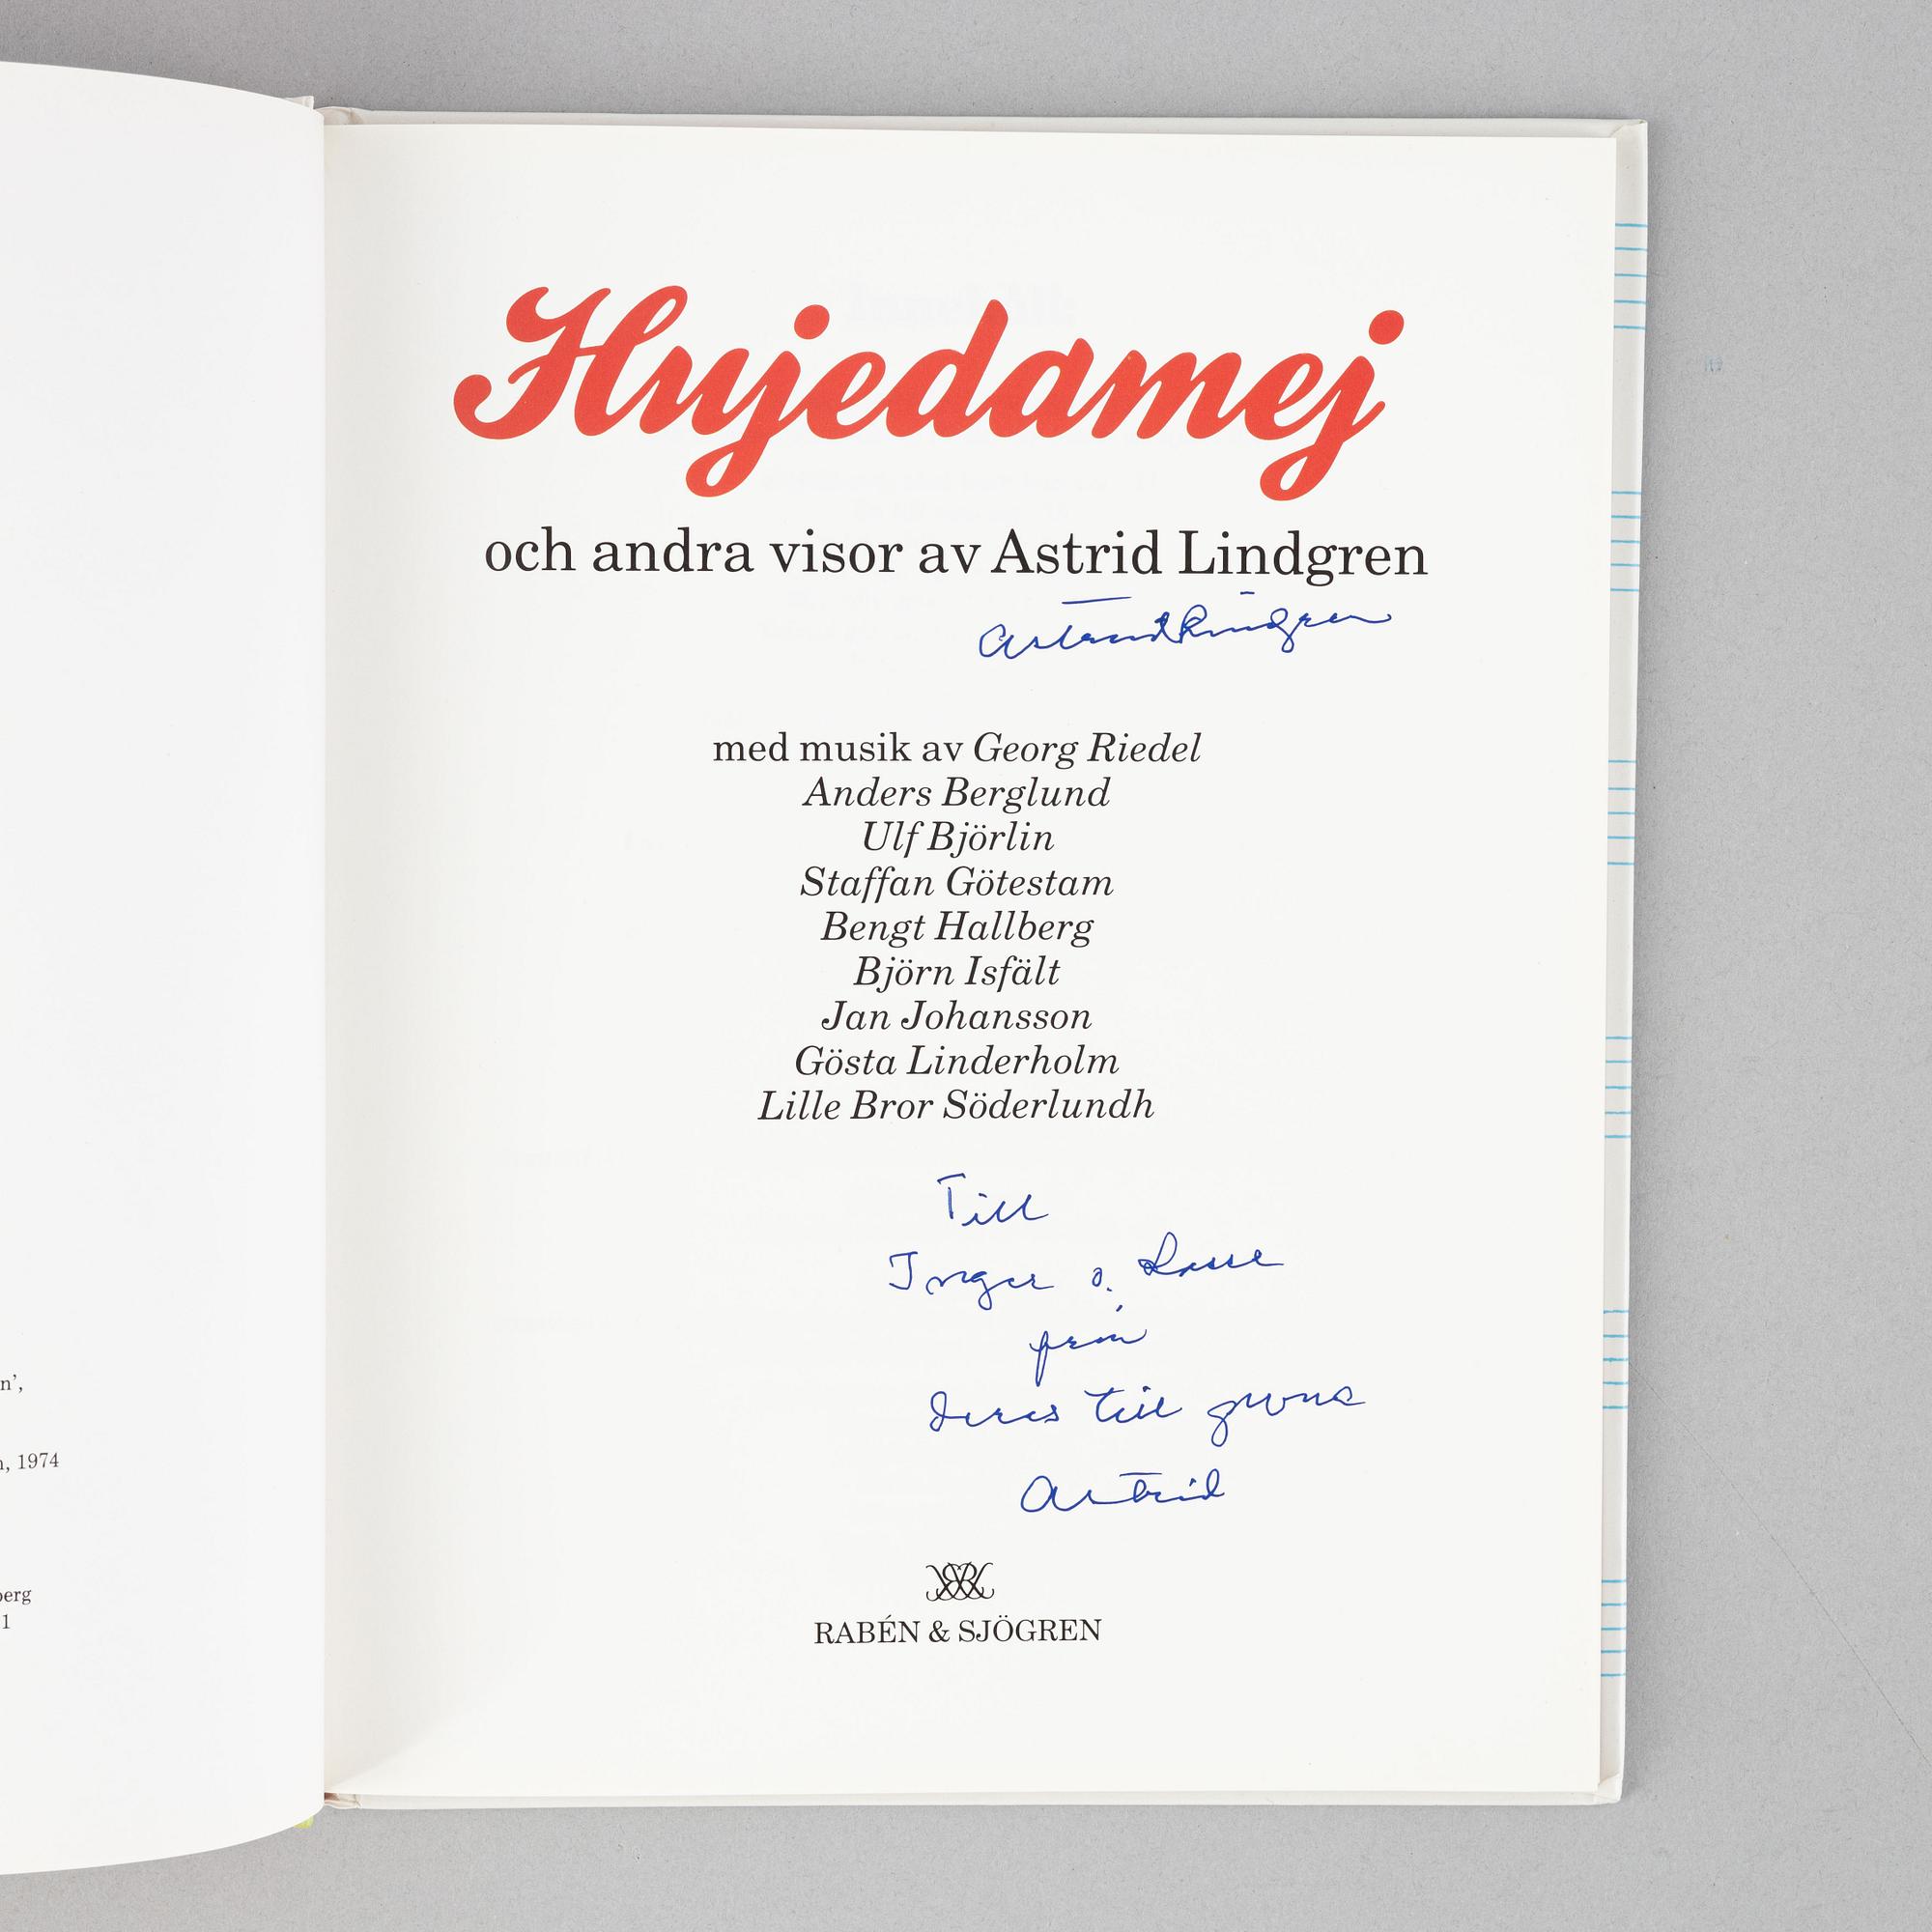 Hujedamej
och andra visor av Astrid Lindgren
Astrid Lindgren
med musik av Georg Riedel
Anders Berglund
Ulf Björlin
Staffan Götestam
Bengt Hallberg
Björn Isfält
Jan Johansson
Gösta Linderholm
Lille Bror Söderlundh
Till
Inger o. Lasse
från
deras till
Astrid
RABÉN & SJÖGREN
n',
n, 1974
berg
1